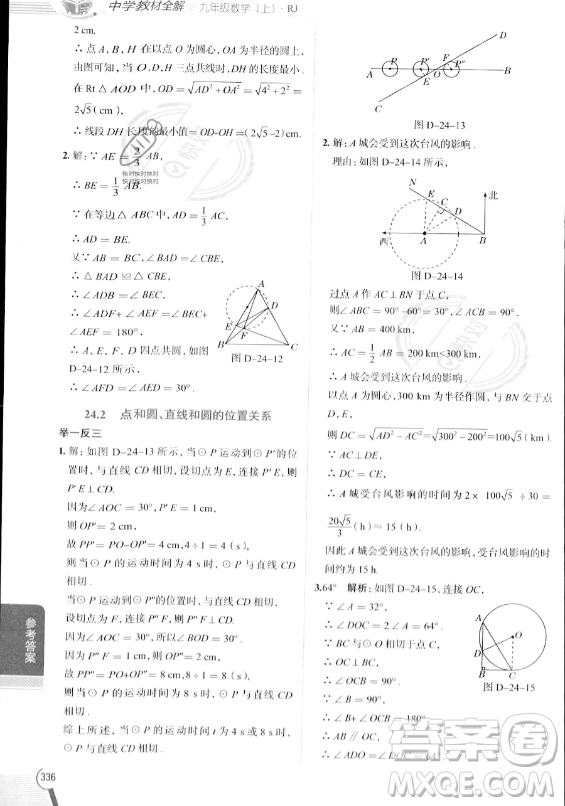 中学教材全解 九年级数学(上)·RJ
2 cm.
∴ 点 O 在以点 A 为圆心,OA 为半径的圆上,
由图可知,当 O、H、D 三点共线时,DH 的长度最小.
在 Rt△AOD 中,OD = √(AD²+OA²) = √(4²+2²) =
2√5(cm),
∴ 线段 DH 长度的最小值=OD-OH=(2√5-2)cm.
2. 解:∵ AE = 2/3 AB,
∴ BE = 1/3 AB.
∵ 在等边△ABC 中,AD = 1/3 AC,
∴ AD = BE.
又∵ AB = BC,∠BAD = ∠CBE,
∴ △BAD ≌ △CBE,
∴ ∠ADB = ∠BEC,
∴ ∠ADF+ ∠AEF = ∠BEC+
∠AEF = 180°,
∴ A、E、F、D 四点共圆,如图
D-24-12 所示,
∴ ∠AFD = ∠AED = 30°.
A
D
E
F
B
C
图 D-24-12
24.2 点和圆、直线和圆的位置关系
举一反三
1. 解:如图 D-24-13 所示,当⊙P 运动到⊙P'的位
置时,与直线 CD 相切,设切点为 E,连接 P'E,则
P'E⊥CD.
因为∠AOC = 30°,P'E = 1 cm,
所以 OP' = 2 cm,
故 PP' = PO-OP' = 4 cm,4÷1 = 4(s),
则当⊙P 的运动时间为 4 s 时,⊙P 与直线 CD
相切.
当⊙P 运动到⊙P''的位置时,与直线 CD 相切,
设切点为 F,连接 P''F,则 P''F⊥CD.
因为∠AOC = 30°,所以∠DOB = 30°.
因为 P''F = 1 cm,所以 OP'' = 2 cm,
故 PP'' = PO+OP'' = 8 cm,8÷1 = 8(s),
则当⊙P 的运动时间为 8 s 时,⊙P 与直线 CD
相切.
综上所述,当⊙P 的运动时间为 4 s 或 8 s 时,⊙P
与直线 CD 相切.
参考答案
336
D
A
P
P'
O
F
P''
B
C
E
图 D-24-13
2. 解:A 城会受到这次台风的影响.
理由:如图 D-24-14 所示,
N
E
C
D
北
西
A
B
图 D-24-14
过点 A 作 AC⊥BN 于点 C,
则∠ABC = 90°-60° = 30°,∠ACB = 90°.
又∵ AB = 400 km,
∴ AC = 1/2 AB = 200 km<300 km,
∴ A 城会受到这次台风的影响.
以点 A 为圆心,300 km 为半径作圆,交 BN 于点
D、E,
则 DC = √(AD²-AC²) = √(300²-200²) = 100√5
(km).
∴ DC = CE,
∴ A 城受台风影响的时间为 2× 100√5 ÷30 =
20√5/3(h)≈15(h).
因此 A 城会受到这次台风的影响,受台风影响的时
间约为 15 h.
3. 64° 解析:如图 D-24-15,连接 OC,
∵ ∠A = 32°,
∴ ∠DOC = 2∠A = 64°.
∵ BC 与⊙O 相切,
∴ OC⊥BC.
∵ ∠B = 90°,
∴ ∠B+
∴ AB∥
∴ ∠ADO = ∠DOC = 64°.
A
D
O
B
C
图 D-24-15
快对
快时快时快时
快时快时快时
答案圈